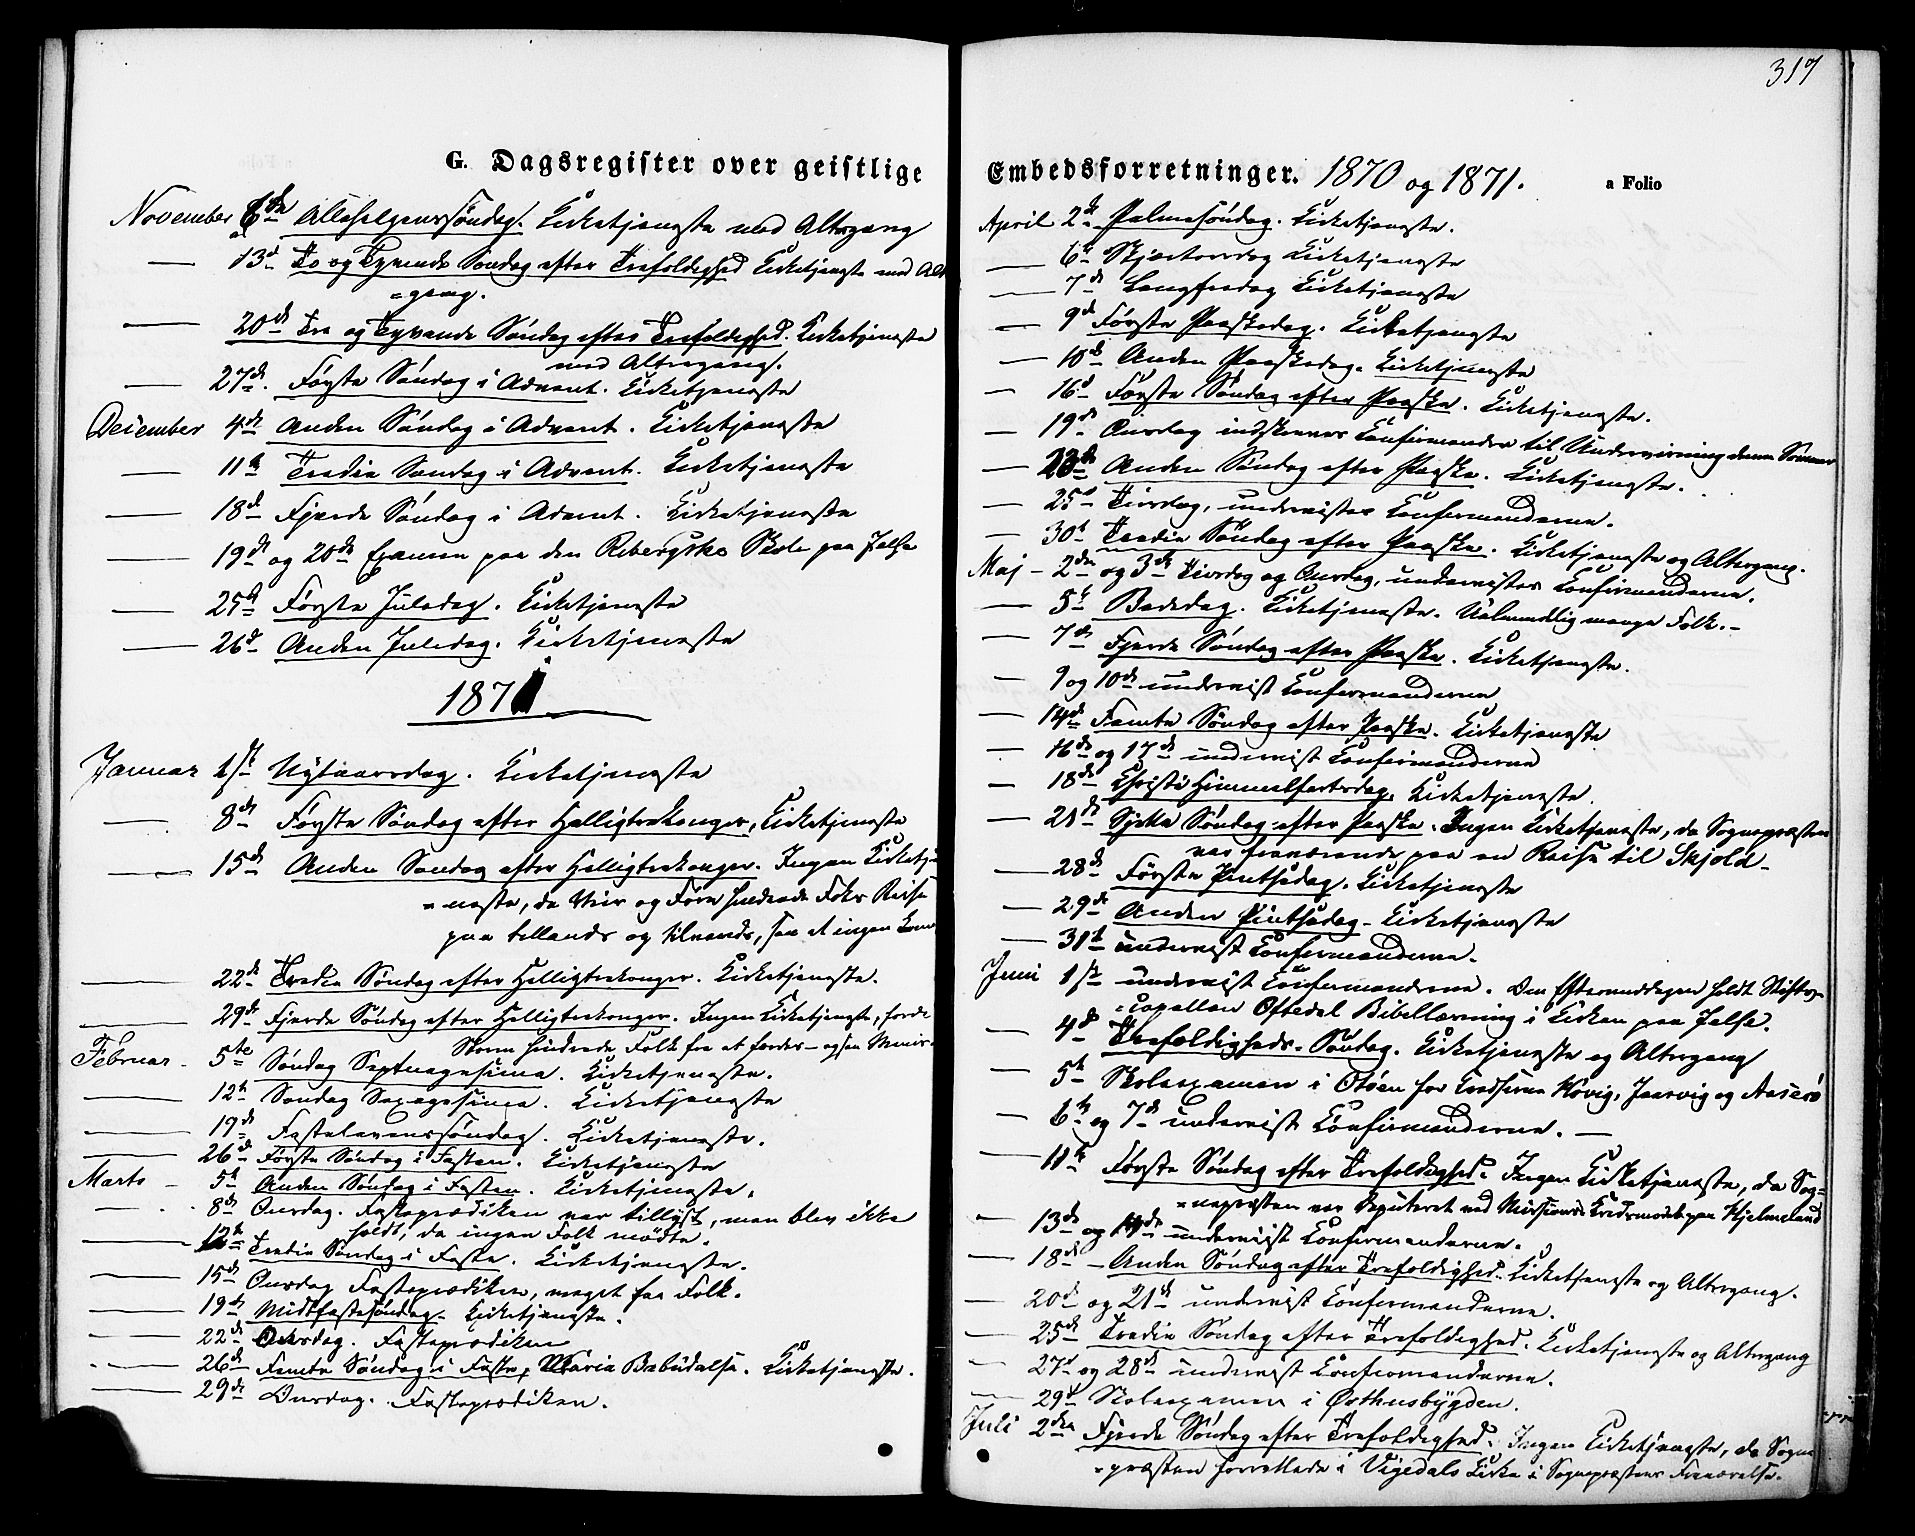 G. Dagsregister over geistlige
November 6te Allehelgenssøndag. Kirketjeneste med Altergang
— 13de To og Tyvende Søndag efter Trefoldighed Kirketjeneste med Alter
=gang.
— 20de Tre og Tyvende Søndag efter Trefoldighed. Kirketjeneste
med Altergang.
— 27de. Første Søndag i Advent. Kirketjeneste
December 4de Anden Søndag i Advent. Kirketjeneste
— 11te Tredie Søndag i Advent. Kirketjeneste
— 18de Fjerde Søndag i Advent. Kirketjeneste
— 19de og 20de Examen paa den Rebergske Skole paa Jelse
— 25de Første Juledag. Kirketjeneste
— 26de Anden Juledag. Kirketjeneste
1871
Januar 1ste Nytaarsdag. Kirketjeneste
— 8de Første Søndag efter Helligtrekonger, Kirketjeneste
— 15de Anden Søndag efter Helligtrekonger. Ingen Kirketje
=neste, da Veir og Føre hindrede Folks Reise
paa tillands og tilvands, saa at ingen kom
— 22de Tredie Søndag efter Helligtrekonger. Kirketjeneste.
— 29de Fjerde Søndag efter Helligtrekonger. Ingen Kirketjeneste, fordi
Storm hindrede Folk fra at færdes — ogsaa
Februar - 5te Søndag Septuagesima. Kirketjeneste.
— 12te Søndag Sexagesima. Kirketjeneste
— 19de Fastelavenssøndag. Kirketjeneste.
— 26de Første Søndag i Fasten. Kirketjeneste
Marts - 5te Anden Søndag i Fasten. Kirketjeneste.
— 8de Onsdag. Fasteprædiken var tillyst, men blev ikke
holdt, da ingen Folk mødte.
— 12te Tredie Søndag i Faste. Kirketjeneste.
— 15de Onsdag Fasteprædiken, meget faa Folk.
— 19de Midtfastesøndag. Kirketjeneste.
— 22de Onsdag. Fasteprædiken
— 26de Femte Søndag i Faste, Maria Bebudelse. Kirketjeneste.
— 29de Onsdag. Fasteprædiken.
317
Embedsforretninger. 1870 og 1871. a Folio
April 2de Palmesøndag. Kirketjeneste.
— 6te Skjærtorsdag Kirketjeneste
— 7de Langfredag Kirketjeneste
— 9de Første Paaskedag. Kirketjeneste
— 10de Anden Paaskedag. Kirketjeneste
— 16de Første Søndag efter Paaske. Kirketjeneste.
— 19de Onsdag indskreves Confirmander til Undervisning denne Sommer
— 23de Anden Søndag efter Paaske. Kirketjeneste.
— 25de Tirsdag, undervistes Confirmanderne.
— 30te Tredie Søndag efter Paaske. Kirketjeneste og Altergang.
Maj - 2den og 3die Tirsdag og Onsdag, undervistes Confirmanderne.
— 5te Bededag. Kirketjeneste. Ualmindelig mange Folk. -
— 7de Fjerde Søndag efter Paaske. Kirketjeneste.
— 9 og 10de undervist Confirmanderne
— 14de Femte Søndag efter Paaske. Kirketjeneste
— 16de og 17de undervist Confirmanderne
— 18de Christi Himmelfartsdag. Kirketjeneste.
— 21de Sjette Søndag efter Paaske. Ingen Kirketjeneste, da Sognepræsten
var fraværende paa en Reise til Skjold -
— 28de Første Pintsedag. Kirketjeneste
— 29de Anden Pintsedag - Kirketjeneste
— 31te undervist Confirmanderne.
Juni 1ste undervist Confirmanderne. Om Eftermiddagen holdt Stifts=
=capellan Oftedal Bibellæsning i Kirken paa Jelse.
— 4de Trefoldigheds-Søndag. Kirketjeneste og Altergang
— 5te Skoleexamen i Otøen for Kredsene Hovig, Jaarvig og Aaserø
— 6te og 7de undervist Confirmanderne. —
— 11te Første Søndag efter Trefoldighed. Ingen Kirketjeneste, da Sog=
=nepræsten var Deputeret ved Missions-Kredsmødet paa Hjelmeland
— 13de og 14de undervist Confirmanderne.
— 18de - Anden Søndag efter Trefoldighed. Kirketjeneste og Altergang.
— 20de og 21de undervist Confirmanderne.
— 25de Tredie Søndag efter Trefoldighed. Kirketjeneste og Altergang
— 27de og 28de undervist Confirmanderne.
— 29de Skoleexamen i Østhusbygden.
Juli 2den Fjerde Søndag efter Trefoldighed. Ingen Kirketjeneste, da Sogne
=præsten forrettede i Vigedals Kirke i Sognepræstens Fraværelse.